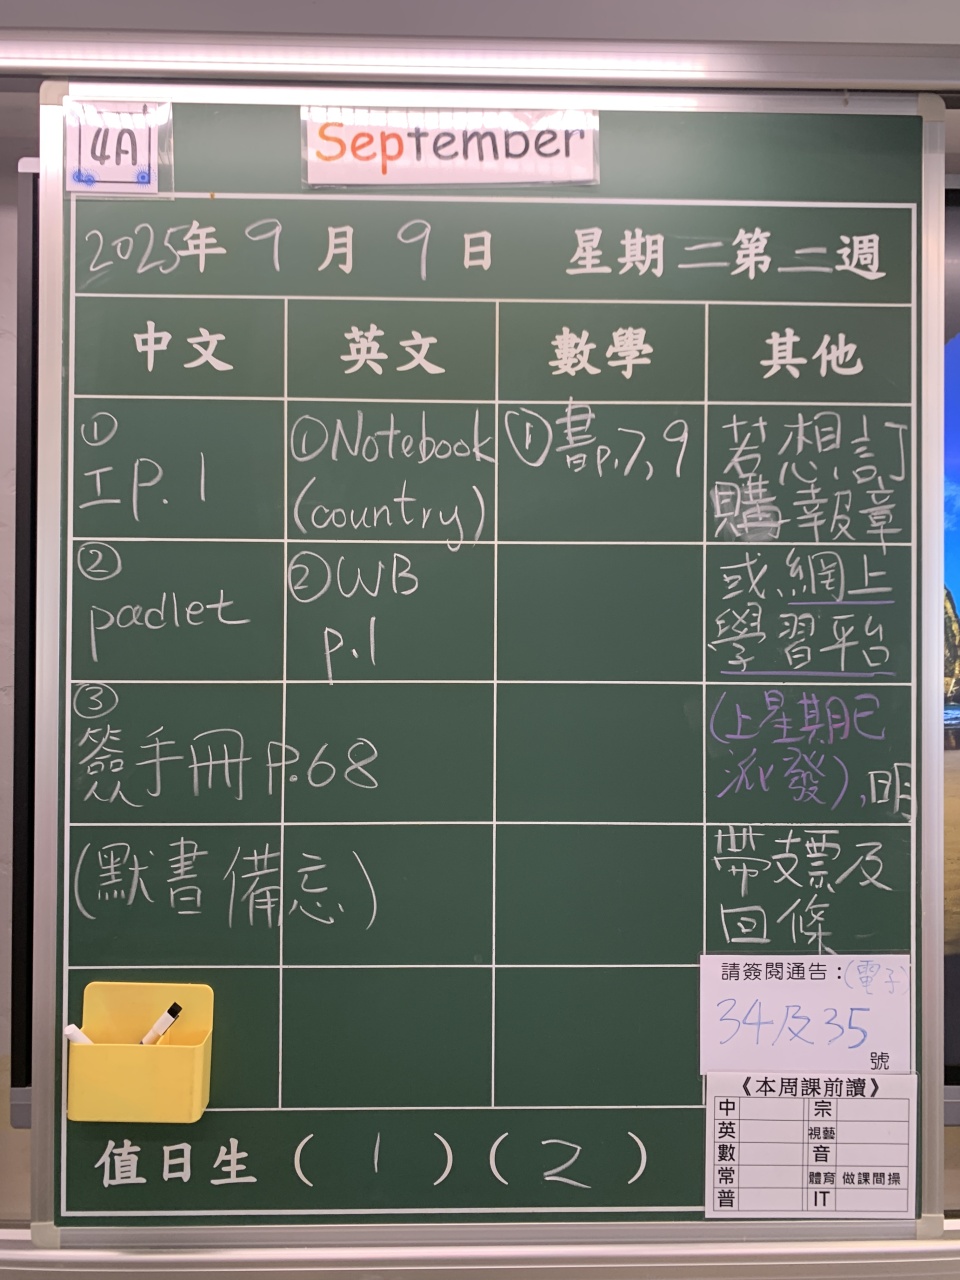 4A
September
2025年9月9日 星期二第二週
中文 英文 數學 其他
①
工P.1
②
padlet
③
簽手冊P.68
(默書備忘)
①Notebook
(country)
②WB
p.1
①書p.7,9
若想訂
購報章
或網上
學習平台
(上星期已
派發),明
帶支票及
回條
請簽閱通告：(電子)
34及35
號
《本周課前讀》
中 宗
英 視藝
數 音
常 體育 做課間操
普 IT
值日生(1)(2)